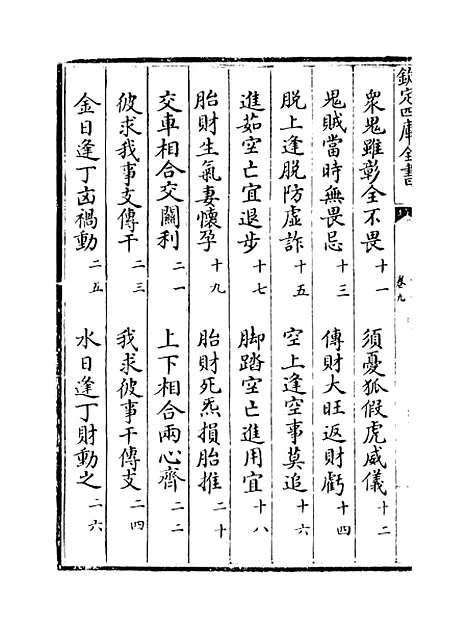 欽定四庫全書
卷九
眾鬼雖彰全不畏 十一
須憂狐假虎威儀 十二
鬼賊當時無畏忌 十三
傳財大旺返財虧 十四
脫上逢脫防虛詐 十五
空上逢空事莫追 十六
進茹空亡宜退步 十七
脚踏空亡進用宜 十八
胎財生氣妻懷孕 十九
胎財死炁損胎推 二十
交車相合交關利 二一
上下相合兩心齊 二二
彼求我事支傳干 二三
我求彼事干傳支 二四
金日逢丁凶禍動 二五
水日逢丁財動之 二六